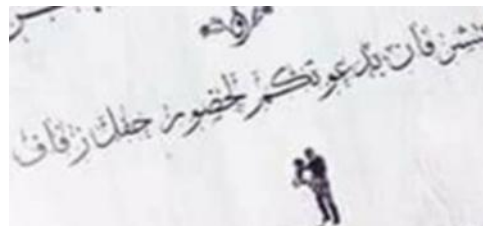 يتشرفان بدعوتكم لحضور حفل زفاف